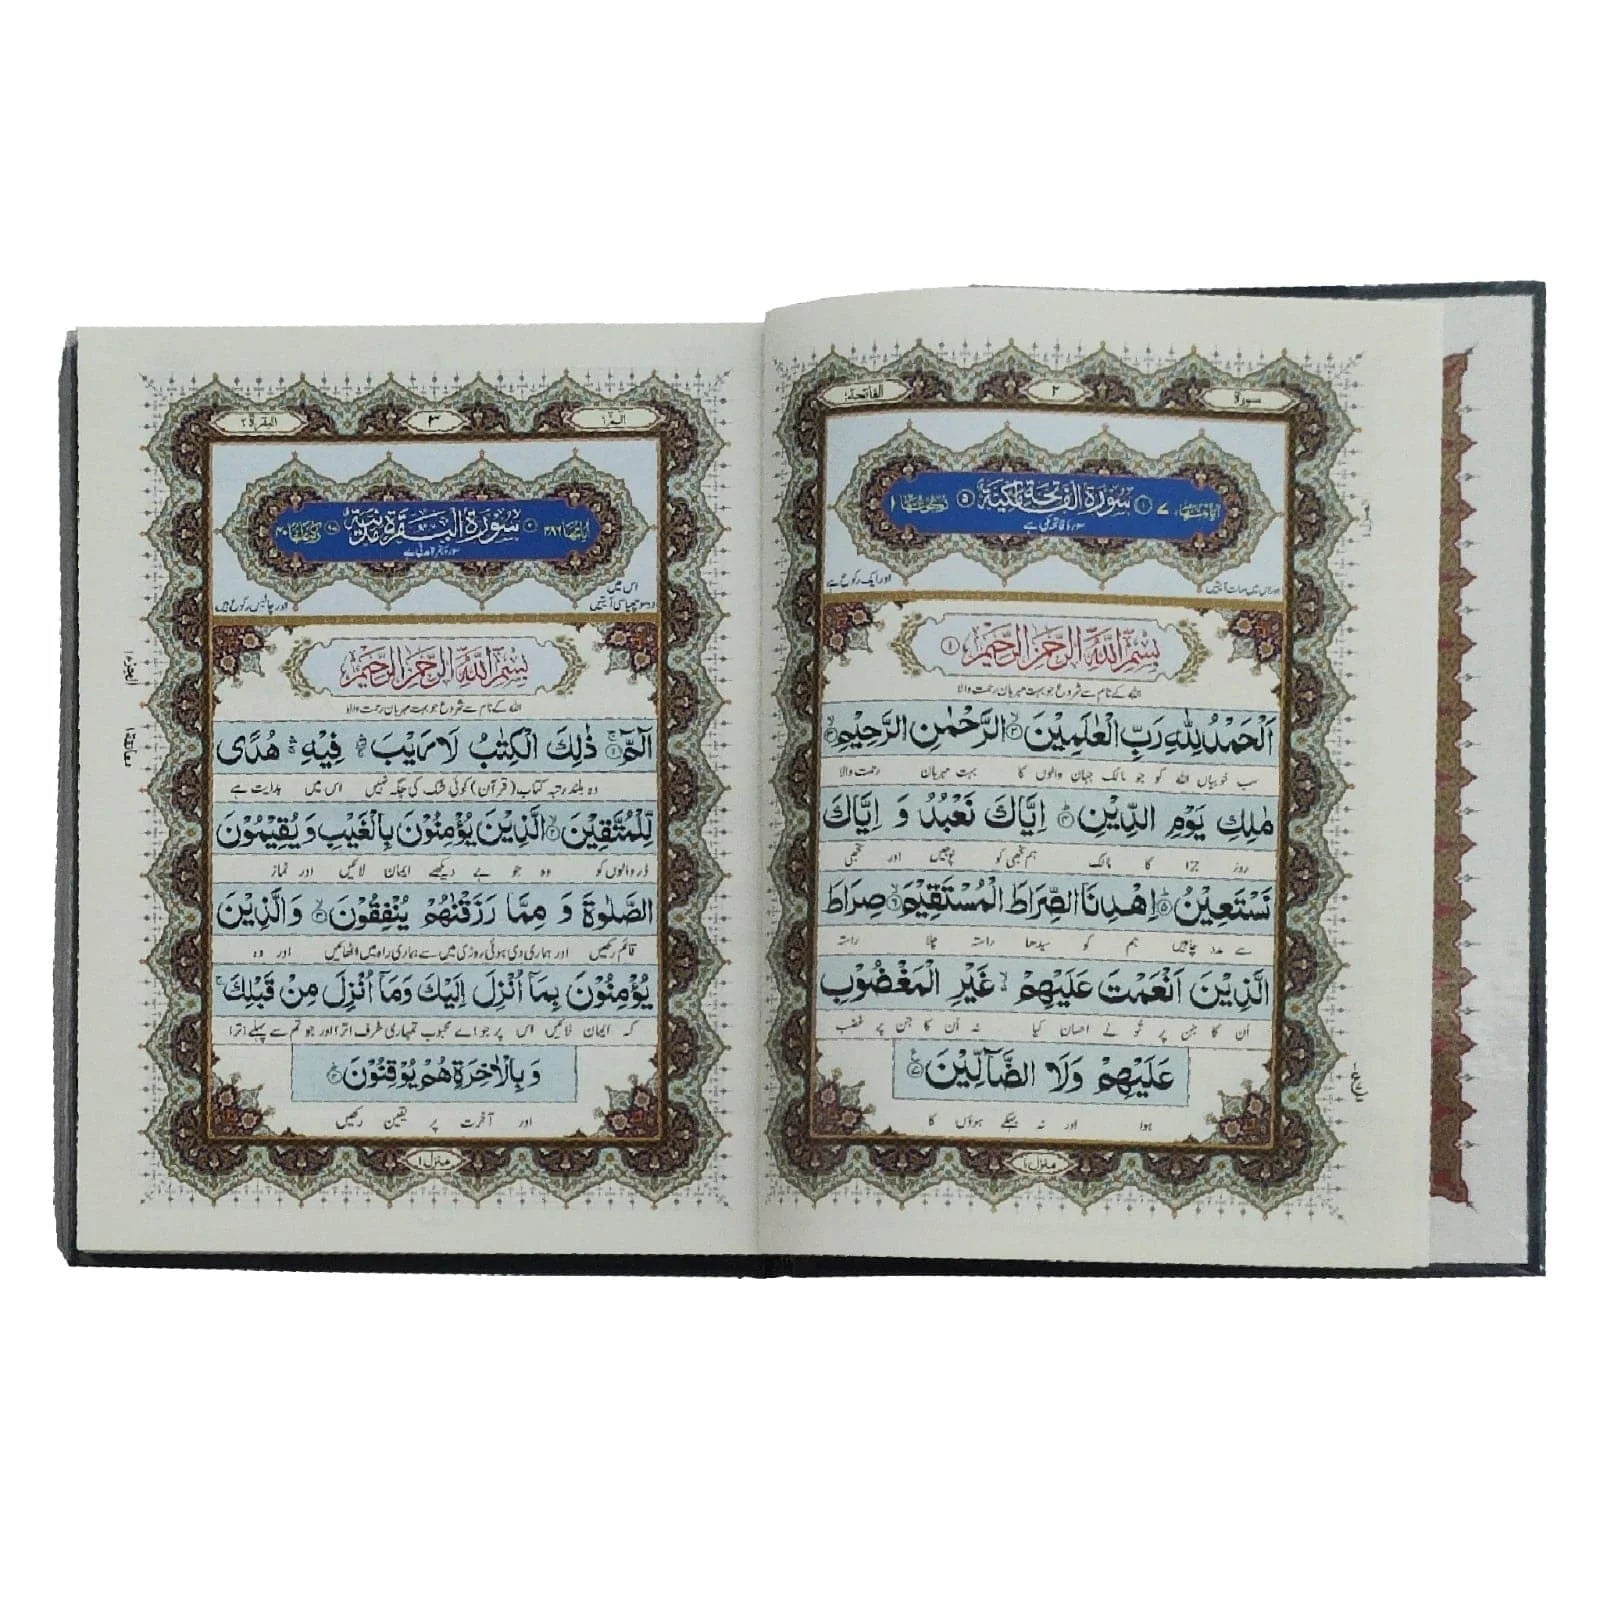 سورة
٢
الفاتحة ١
اٰیاتها ٧
سُوْرَةُ الْفَاتِحَةِ مَكِّيَّةٌ
رکوعها ١
سورۂ فاتحہ مکی ہے
اور اس میں سات آیتیں
اور ایک رکوع ہے
بِسْمِ اللّٰهِ الرَّحْمٰنِ الرَّحِيْمِ ١
اللہ کے نام سے شروع جو بہت مہربان رحمت والا
اَلْحَمْدُ لِلّٰهِ رَبِّ الْعٰلَمِيْنَ ٢ الرَّحْمٰنِ الرَّحِيْمِ ٣
سب خوبیاں اللہ کو جو مالک جہان والوں کا بہت مہربان رحمت والا
مٰلِكِ يَوْمِ الدِّيْنِ ٤ اِيَّاكَ نَعْبُدُ وَ اِيَّاكَ
روز جزا کا مالک ہم تجھی کو پوجیں اور تجھی
نَسْتَعِيْنُ ٥ اِهْدِنَا الصِّرَاطَ الْمُسْتَقِيْمَ ٦ صِرَاطَ
سے مدد چاہیں ہم کو سیدھا راستہ چلا راستہ
الَّذِيْنَ اَنْعَمْتَ عَلَيْهِمْ غَيْرِ الْمَغْضُوْبِ
اُن کا جن پر تُو نے احسان کیا نہ اُن کا جن پر غضب
عَلَيْهِمْ وَلَا الضَّآلِّيْنَ ٧
ہوا اور نہ بہکے ہوؤں کا
منزل ١
الٓمّٓ ١
٣
البقرة ٢
اٰیاتها ٢٨٦
سُوْرَةُ الْبَقَرَةِ مَدَنِيَّةٌ
رکوعاتها ٤٠
سورۂ بقرہ مدنی ہے
اس میں
دو سو چھیاسی آیتیں
اور چالیس رکوع ہیں
بِسْمِ اللّٰهِ الرَّحْمٰنِ الرَّحِيْمِ
اللہ کے نام سے شروع جو بہت مہربان رحمت والا
الٓمّٓ ١ ذٰلِكَ الْكِتٰبُ لَا رَيْبَ فِيْهِ هُدًى
وہ بلند رتبہ کتاب (قرآن) کوئی شک کی جگہ نہیں اس میں ہدایت ہے
لِّلْمُتَّقِيْنَ ٢ الَّذِيْنَ يُؤْمِنُوْنَ بِالْغَيْبِ وَيُقِيْمُوْنَ
ڈر والوں کو وہ جو بے دیکھے ایمان لائیں اور نماز
الصَّلٰوةَ وَ مِمَّا رَزَقْنٰهُمْ يُنْفِقُوْنَ ٣ وَالَّذِيْنَ
قائم رکھیں اور ہماری دی ہوئی روزی میں سے ہماری راہ میں اٹھائیں اور وہ
يُؤْمِنُوْنَ بِمَآ اُنْزِلَ اِلَيْكَ وَمَآ اُنْزِلَ مِنْ قَبْلِكَ
کہ ایمان لائیں اس پر جو اے محبوب تمہاری طرف اترا اور جو تم سے پہلے اترا
وَبِالْاٰخِرَةِ هُمْ يُوْقِنُوْنَ ٤
اور آخرت پر یقین رکھیں
منزل ١